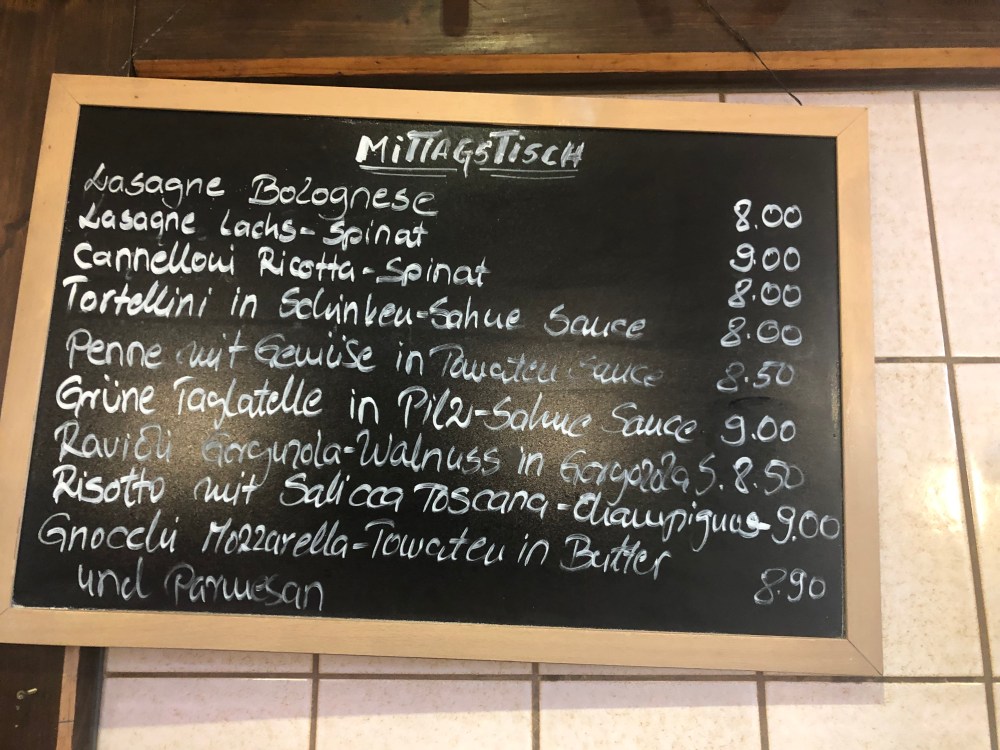 MiTTAGSTiSCH
Lasagne Bolognese 8.00
Lasagne Lachs-Spinat 9.00
Cannelloni Ricotta-Spinat 8.00
Tortellini in Schinken-Sahne Sauce 8.00
Penne mit Gemüse in Tomaten Sauce 8.50
Grüne Taglatelle in Pilz-Sahne Sauce 9.00
Ravioli Walnuss in S. 8.50
Risotto mit Salicca Toscana-Champignos 9.00
Gnocchi Mozzarella-Tomaten in Butter
und Parmesan 8.90